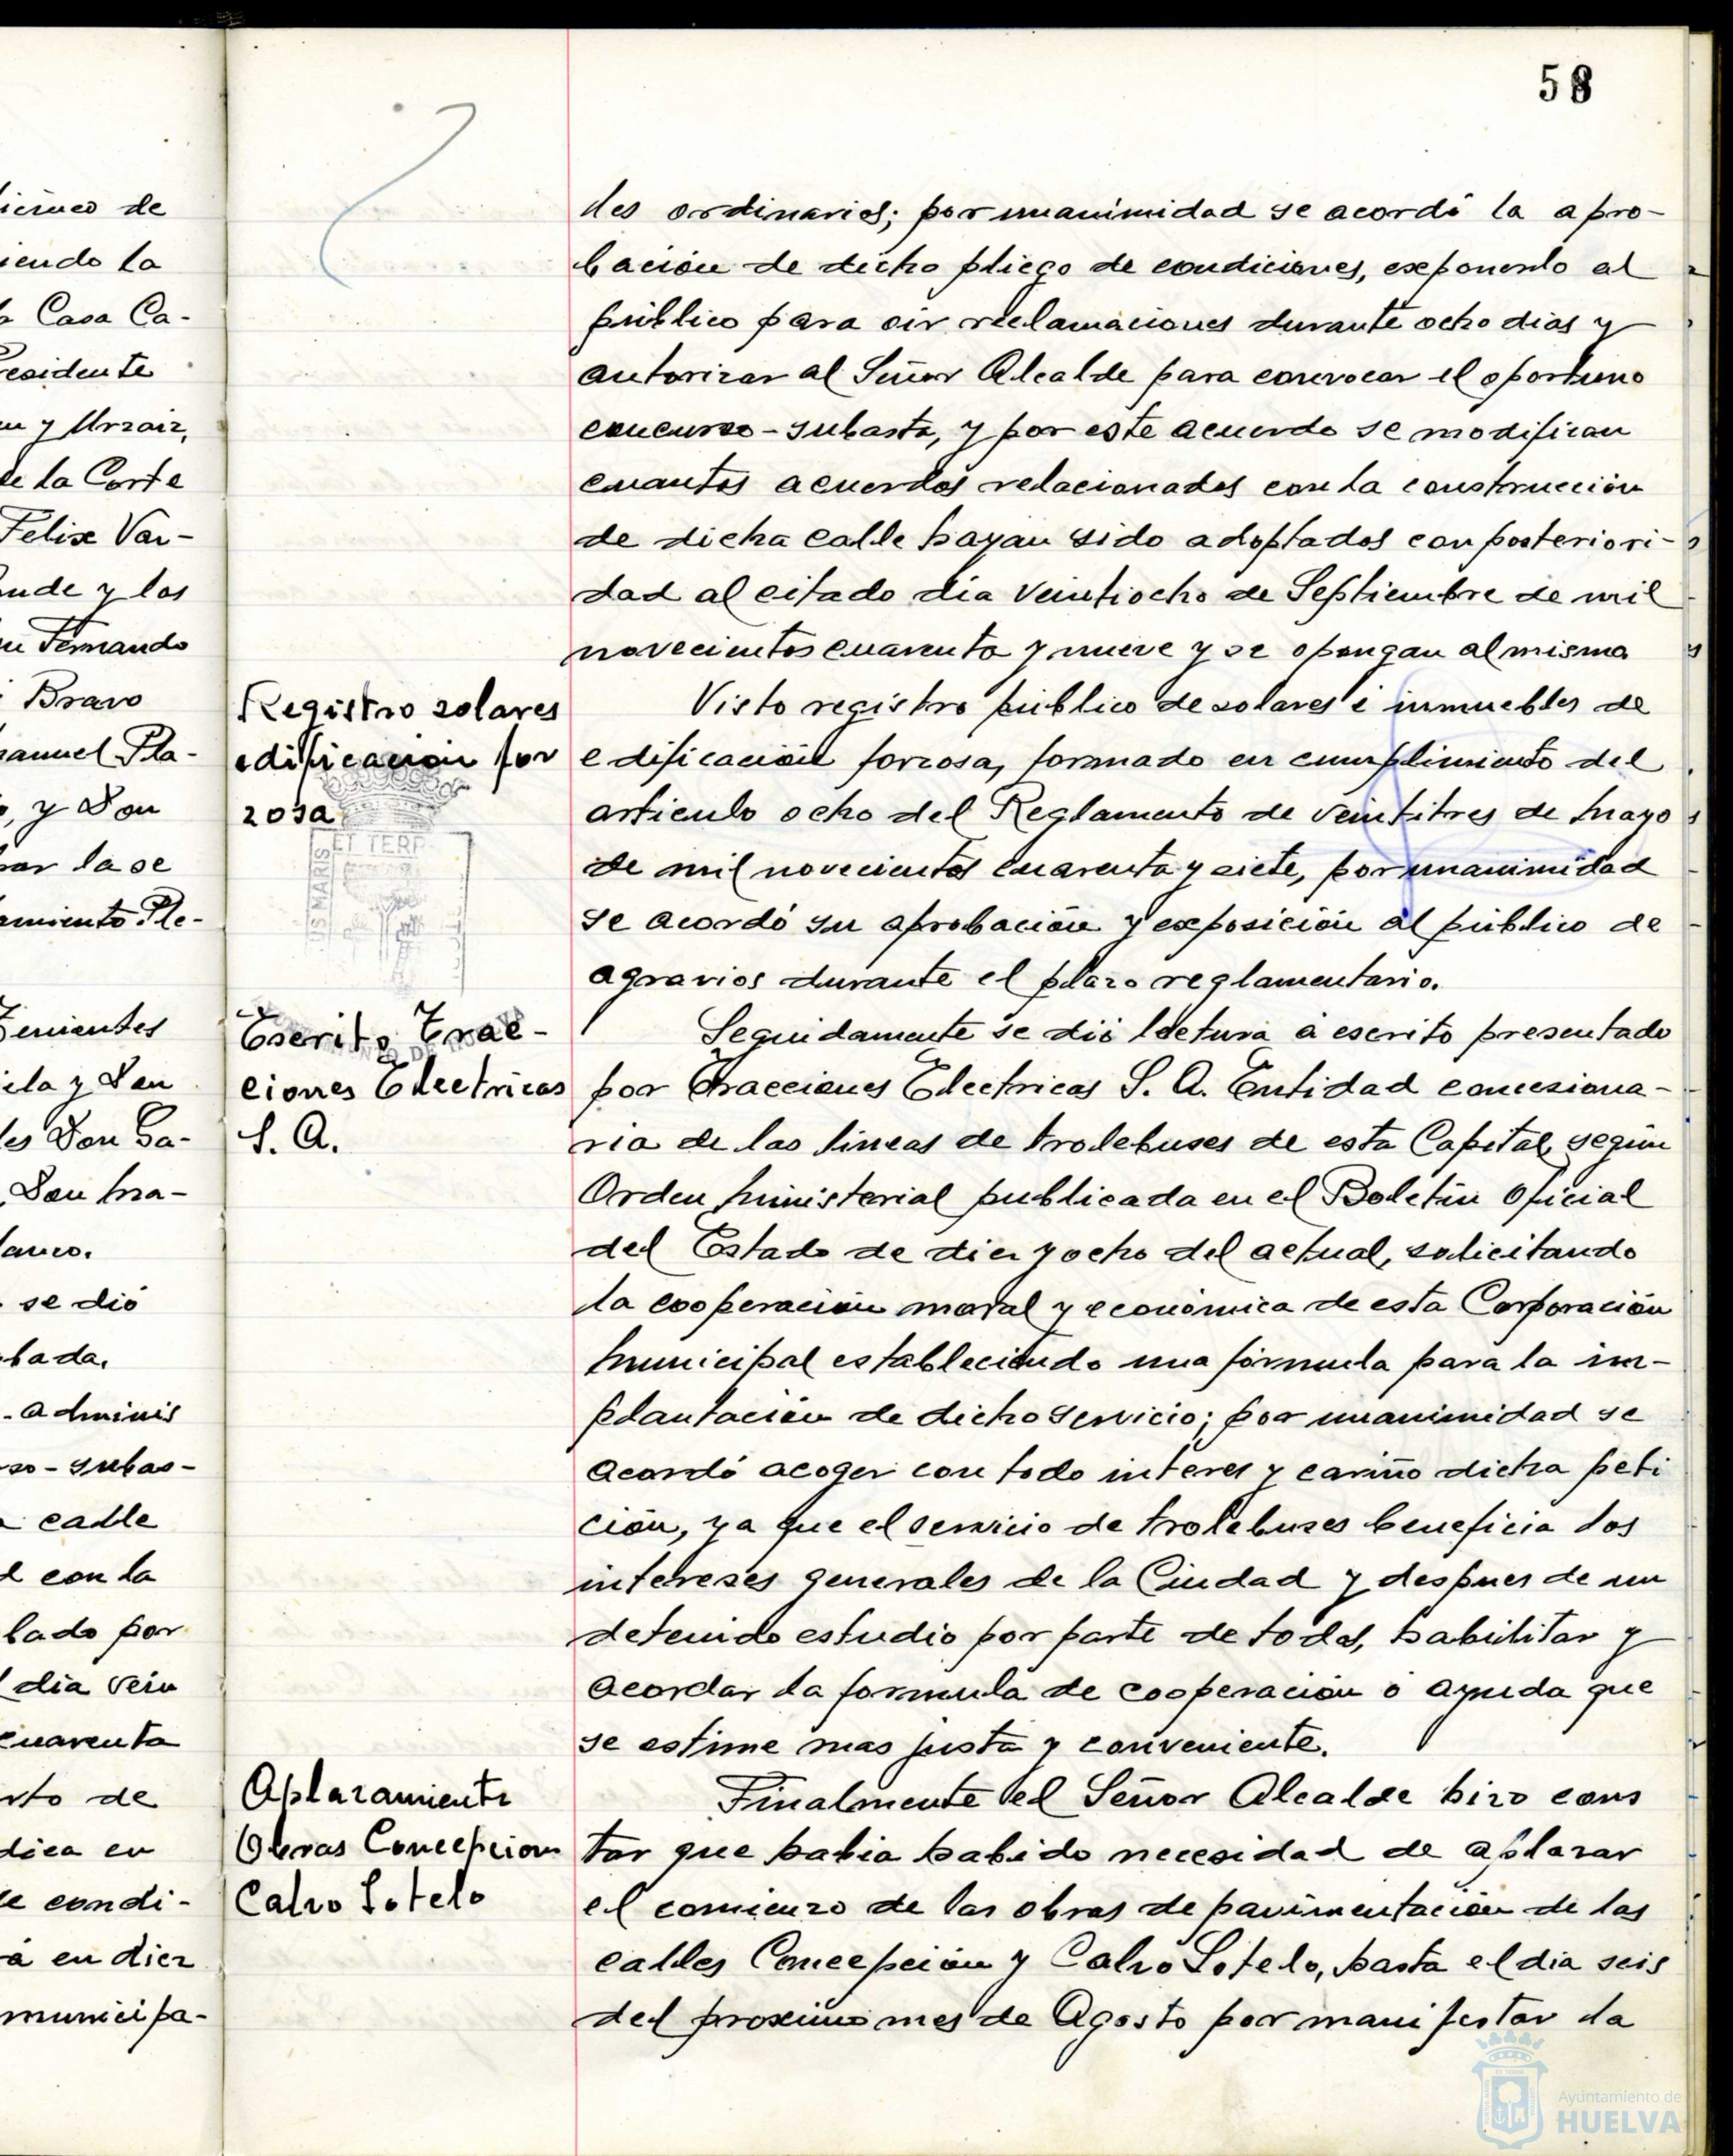 58
des ordinarios; por unanimidad se acordó la apro-
bación de dicho pliego de condiciones, exponerlo al
público para oir reclamaciones durante ocho dias y
autorizar al Señor Alcalde para convocar el oportuno
concurso-subasta, y por este acuerdo se modifican
cuantos acuerdos relacionados con la construcción
de dicha calle hayan sido adoptados con posteriori-
dad al citado dia veintiocho de Septiembre de mil
novecientos cuarenta y nueve y se opongan al mismo
Registro solares
edificacion for
zosa
Visto registro público de solares é inmuebles de
edificación forzosa, formado en cumplimiento del
articulo ocho del Reglamento de veintitres de Mayo
de mil novecientos cuarenta y siete, por unanimidad
se acordó su aprobación y exposición al público de
agravios durante el plazo reglamentario.
Escrito Trac-
ciones Electricas
S. A.
Seguidamente se dió lectura á escrito presentado
por Tracciones Electricas S. A. Entidad concesiona-
ria de las lineas de trolebuses de esta Capital, según
Orden Ministerial publicada en el Boletín Oficial
del Estado de diez y ocho del actual, solicitando
la cooperación moral y económica de esta Corporación
Municipal estableciendo una fórmula para la im-
plantación de dicho servicio; por unanimidad se
acordó acoger con todo interes y cariño dicha peti
ción, ya que el servicio de trolebuses beneficia los
intereses generales de la Ciudad y despues de un
detenido estudio por parte de todos, habilitar y
acordar la formula de cooperación ó ayuda que
se estime mas justa y conveniente.
Aplazamiento
Obras Concepcion
Calvo Sotelo
Finalmente el Señor Alcalde hizo cons
tar que habia habido necesidad de aplazar
el comienzo de las obras de pavimentación de las
calles Concepción y Calvo Sotelo, hasta el dia seis
del proximo mes de Agosto por manifestar la
iendo la
Casa Ca-
esidente
y Urzaiz,
de la Corte
Felix Var-
nde y los
Fernando
Bravo
anuel Pla-
, y Don
rar la se
amiento Ple-
Tenientes
ela y Don
les Don Ga-
Don Ma-
lanco.
se dió
bada.
Adminis
so-subas-
calle
con la
lado por
dia vein
cuarenta
rto de
dica en
e condi-
á en diez
municipa-
ET TERR
US MARIS
Ayuntamiento de
HUELVA